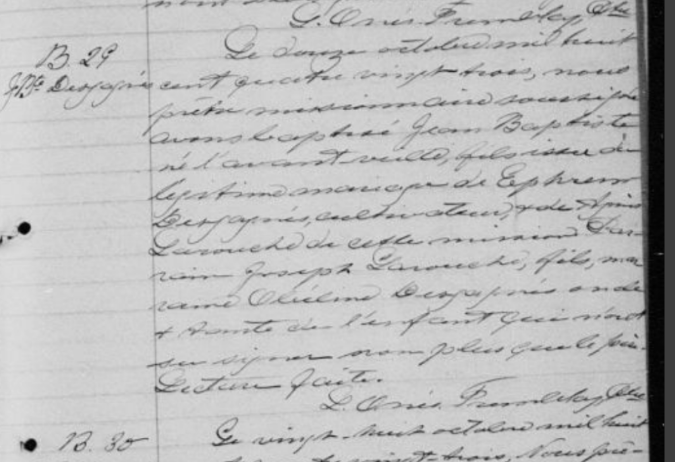 L. Onés. Tremblay Ptre
B. 29
Le douze octobre mil huit
J. Bte Desgagnés
cent quatre vingt trois, nous
prêtre missionnaire soussigné
avons baptisé Jean Baptiste
né l'avant veille, fils issu du
légitime mariage de Ephrem
Desgagnés, cultivateur, & de
Larouche de cette mission Par-
rain Joseph Larouche, fils, mar
raine Desgagnés oncle
& tante de l'enfant qui n'ont
su signer non plus que le père.
Lecture faite.
L. Onés. Tremblay Ptre
B. 30
Le vingt-huit octobre mil huit
vingt-trois, Nous prê-